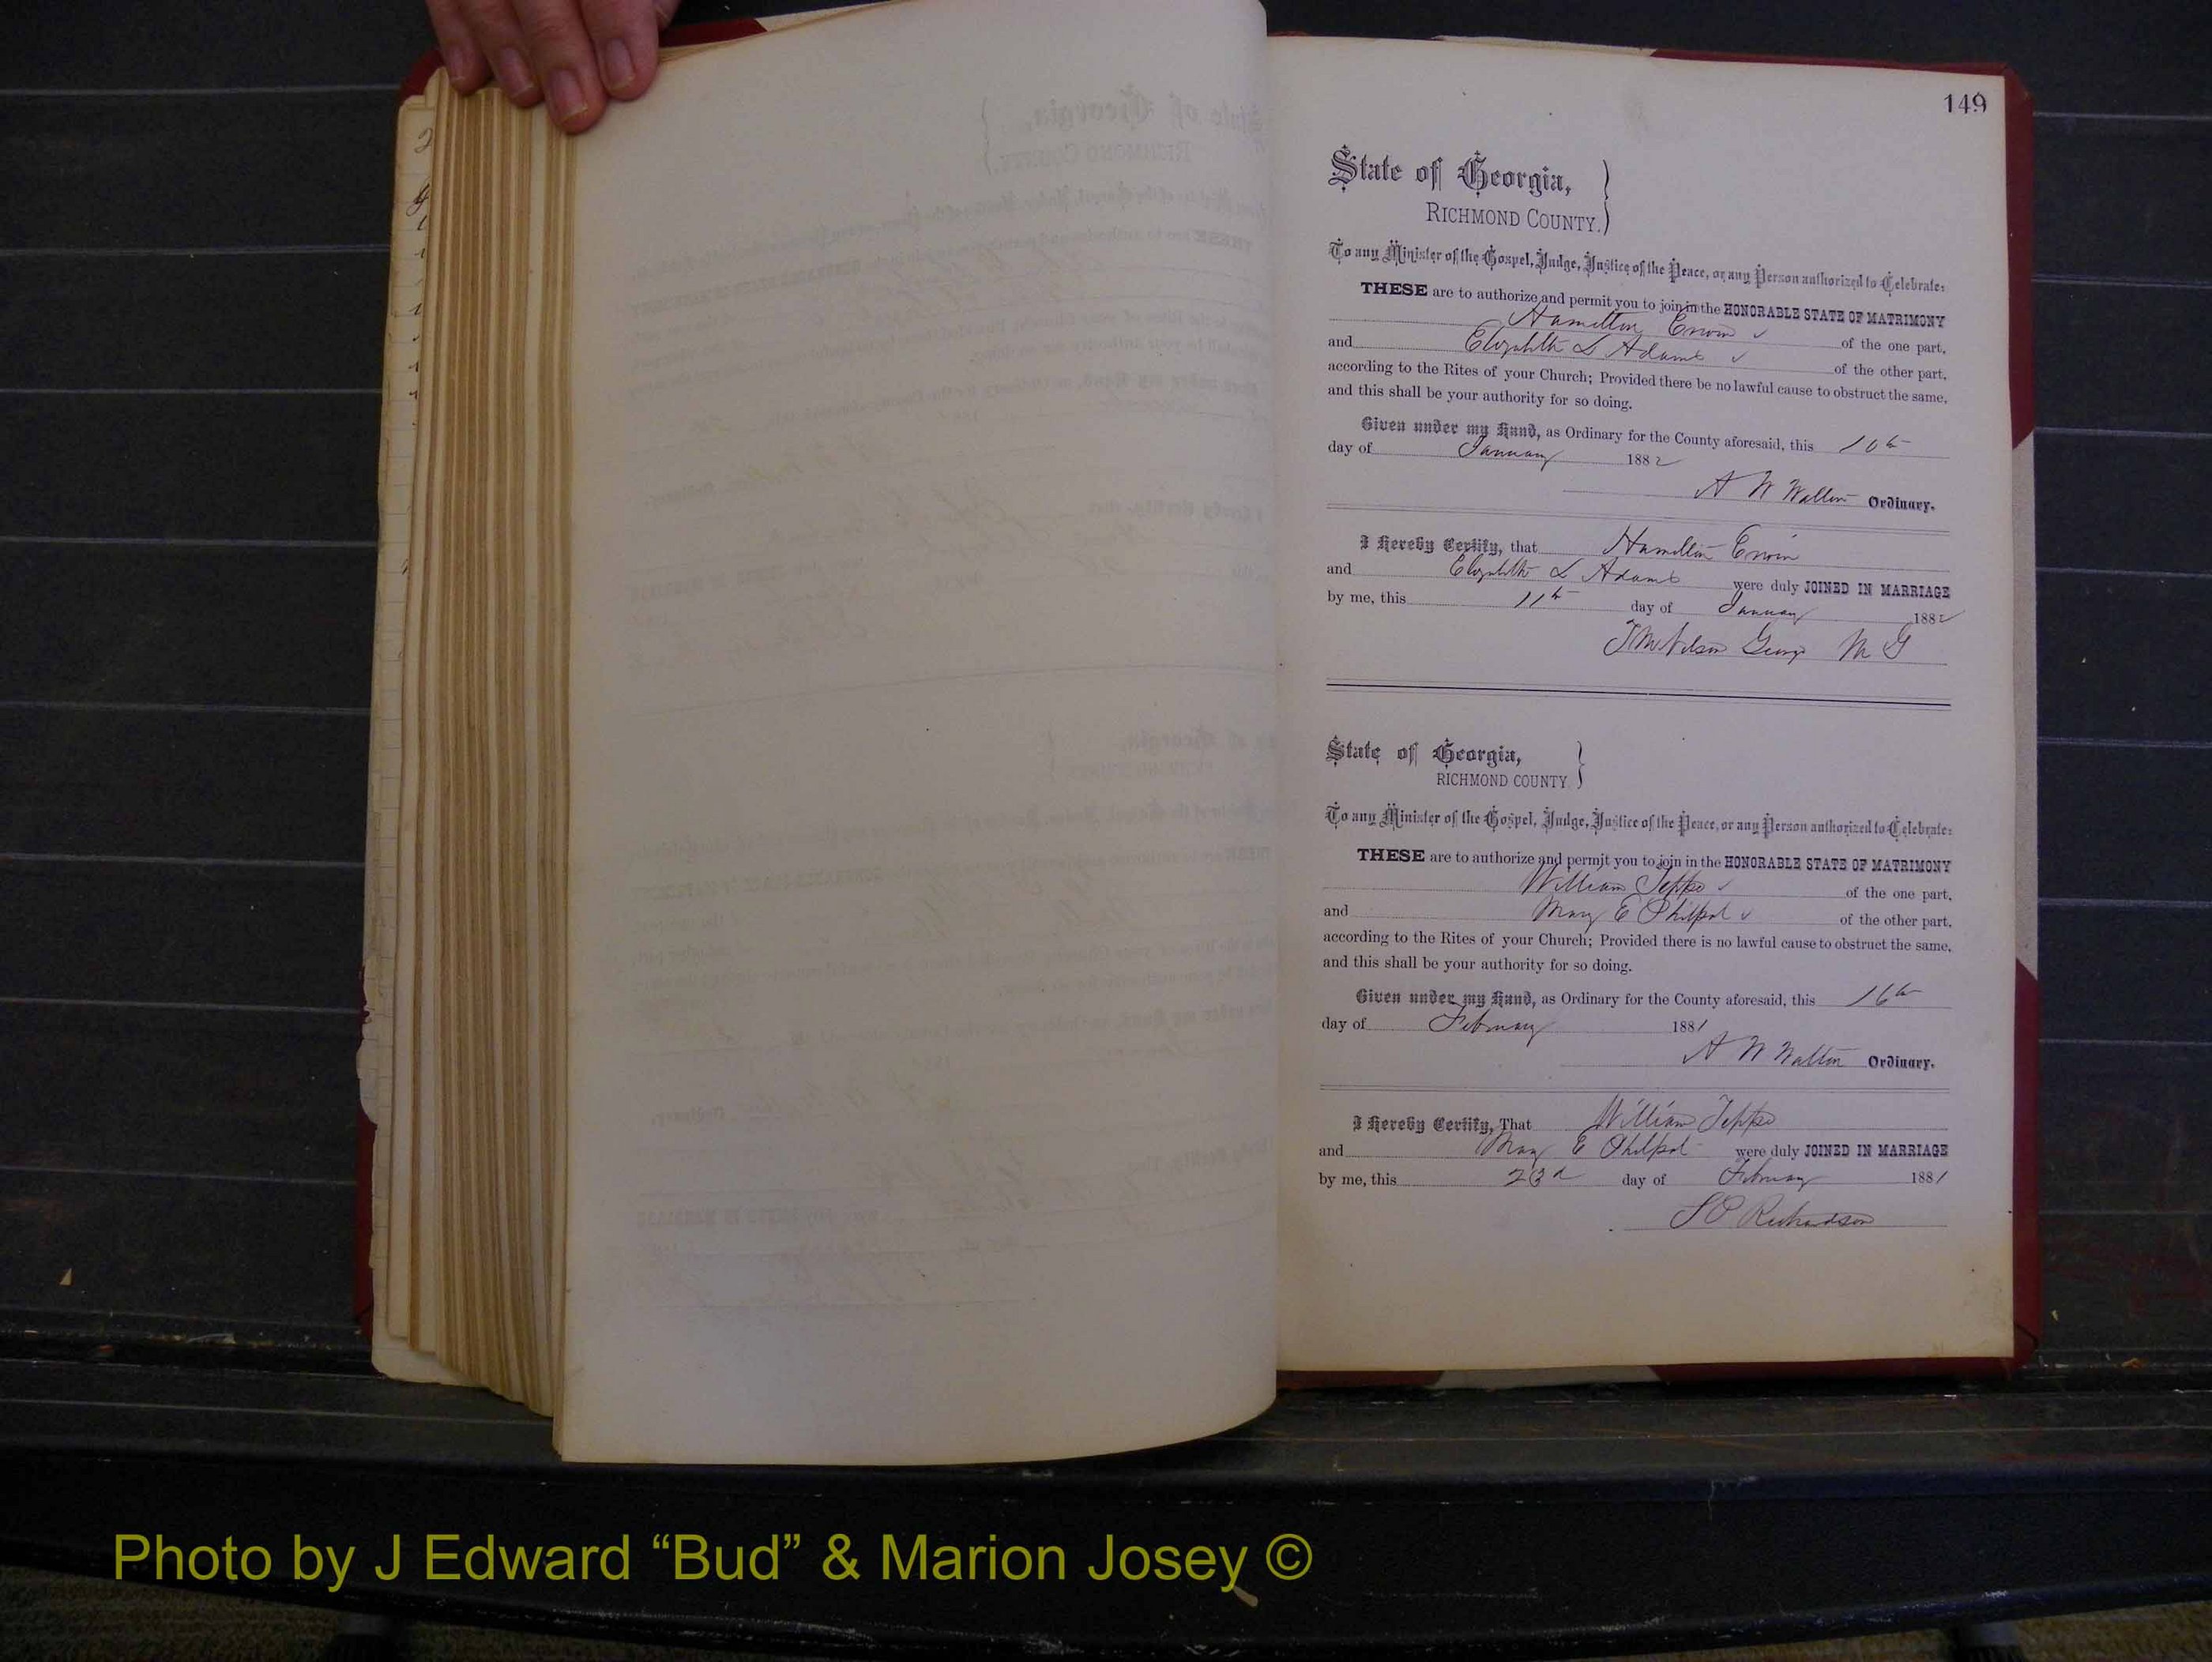 149
State of Georgia,
RICHMOND COUNTY.
To any Minister of the Gospel, Judge, Justice of the Peace, or any Person authorized to Celebrate:
THESE are to authorize and permit you to join in the HONORABLE STATE OF MATRIMONY
Hamilton Erwin ✓ of the one part,
and Elizabeth L Adams ✓ of the other part,
according to the Rites of your Church; Provided there be no lawful cause to obstruct the same,
and this shall be your authority for so doing.
Given under my Hand, as Ordinary for the County aforesaid, this 10th
day of January 1882
A W Walton Ordinary.
I Hereby Certify, that Hamilton Erwin
and Elizabeth L Adams were duly JOINED IN MARRIAGE
by me, this 11th day of January 1882
George M G
State of Georgia,
RICHMOND COUNTY
To any Minister of the Gospel, Judge, Justice of the Peace, or any Person authorized to Celebrate:
THESE are to authorize and permit you to join in the HONORABLE STATE OF MATRIMONY
William Teppo ✓ of the one part,
and Mary E Philpot ✓ of the other part,
according to the Rites of your Church; Provided there is no lawful cause to obstruct the same,
and this shall be your authority for so doing.
Given under my Hand, as Ordinary for the County aforesaid, this 16th
day of February 1881
A W Walton Ordinary.
I Hereby Certify, That William Teppo
and Mary E Philpot were duly JOINED IN MARRIAGE
by me, this 23d day of February 1881
S P Richardson
Photo by J Edward “Bud” & Marion Josey ©